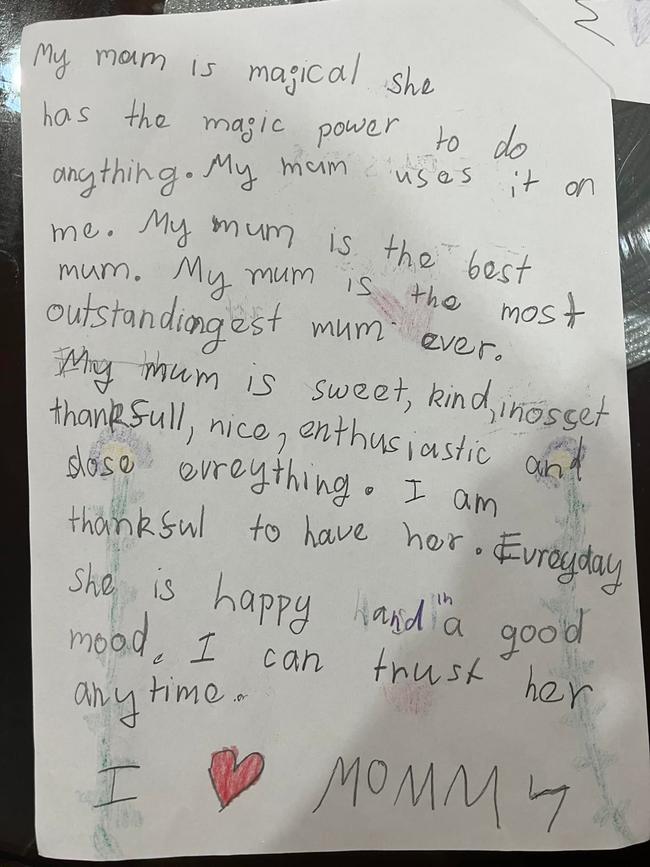 My mam is magical she
has the magic power to do
anything. My mum uses it on
me. My mum is the best
mum. My mum is the most
outstandiongest mum ever.
My mum is sweet, kind, inosget
thankfull, nice, enthusiastic and
dose evreything. I am
thankful to have her. Evreyday
she is happy and in a good
mood. I can trust her
any time.
I ❤ MOMMY